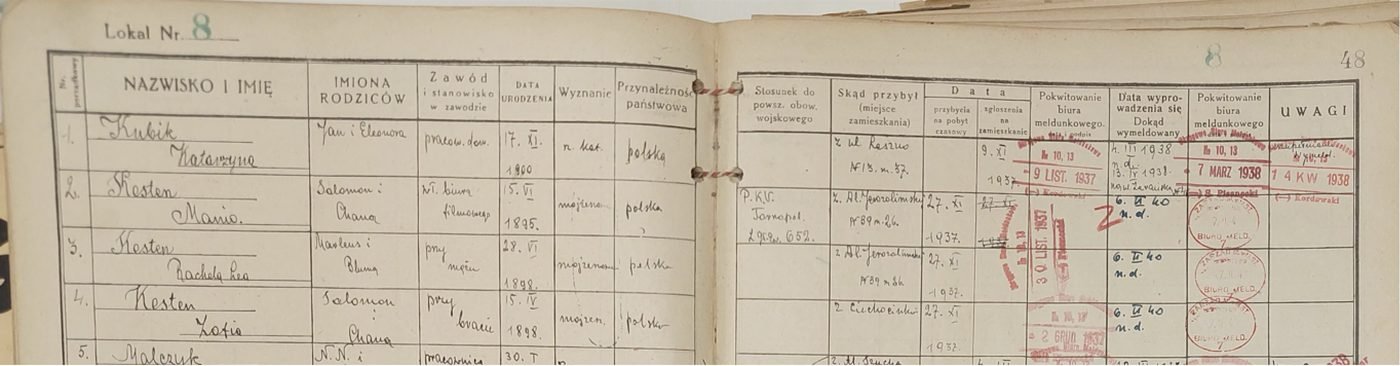 Lokal Nr. 8
8
48
Nr. porządkowy
NAZWISKO I IMIĘ
IMIONA
RODZICÓW
Zawód
i stanowisko
w zawodzie
DATA
URODZENIA
Wyznanie
Przynależność
państwowa
Stosunek do
powsz. obow.
wojskowego
Skąd przybył
(miejsce
zamieszkania)
Data
przybycia
na pobyt
czasowy
zgłoszenia
na
zamieszkanie
Pokwitowanie
biura
meldunkowego.
Data wypro-
wadzenia się
Dokąd
wymeldowany
Pokwitowanie
biura
meldunkowego
UWAGI
1.
Kubik
Katarzyna
Jan i Eleonora
pracow. dom.
17. XI.
1900
rz. kat.
polska
z ul. Leszno
№ 13. m. 37.
9. XI
1937
№ 10, 13
9 LIST. 1937
4. III 1938
n.d.
13. IV 1938.
№ 10, 13
7 MARZ 1938
№ 10, 13
14 KW 1938
2.
Kesten
Manio.
Salomon i
Chana
wł. biura
filmowego
15. VI
1895.
mojżesz.
polska
P.K.U.
Tarnopol.
652.
z. Al. Jerozolimskie
№ 39 m. 26.
27. XI
1937.
27. XI
1937
№ 10, 13
30 LIST. 1937
6. II 40
n.d.
BIURO MELD.
7
3.
Kesten
Rachela Lea
i
Bluma
przy
mężu
28. VI
1898.
mojżeszow.
polska
z Al. Jerozolimskie
№ 39 m. 26.
27. XI
1937.
6. II 40
n.d.
BIURO MELD.
7
4.
Kesten
Zofia
Salomon
i
Chana
przy
bracie
15. IV
1898.
mojżesz.
polska
z Ciechocinka
27. XI
1937.
№ 10, 13
2 GRUD 1937
6. II 40
n.d.
BIURO MELD.
7
5.
Malczyk
N.N. i
pracownica
30. I